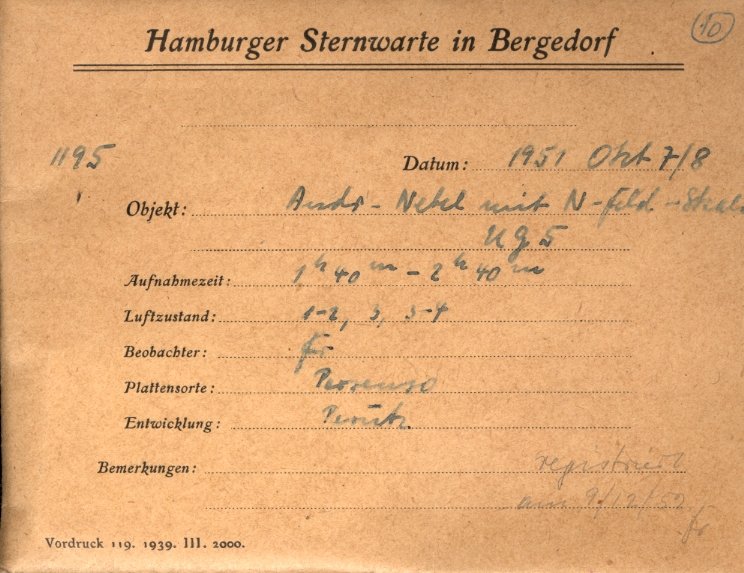 10
Hamburger Sternwarte in Bergedorf
1195
Datum: 1951 Okt 7/8
Objekt: Andr-Nebel mit N-feld-Skala
UG5
Aufnahmezeit: 1h 40m - 2h 40m
Luftzustand: 1-2, 3, 3-4
Beobachter: Fr
Plattensorte:
Entwicklung: Perutz
Bemerkungen: registriert
am 9/12/52
Fr
Vordruck 119. 1939. III. 2000.